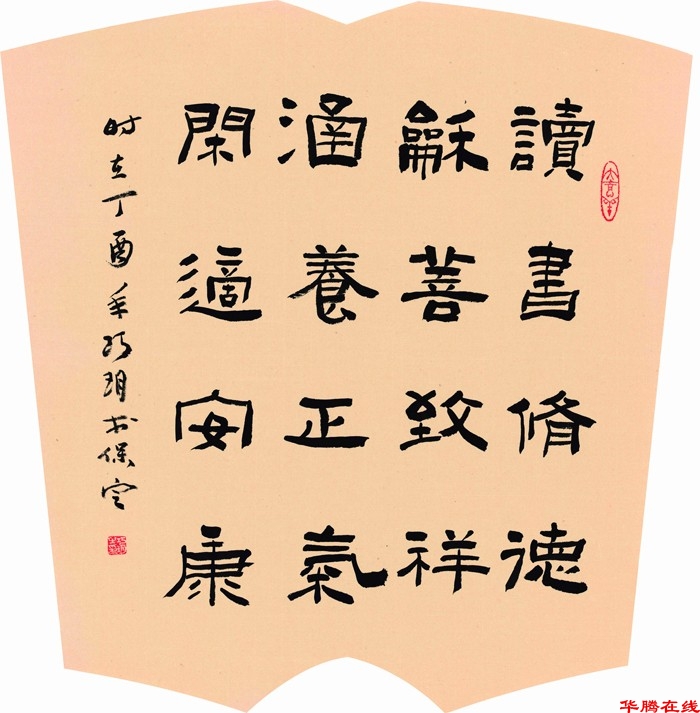 讀書脩德
龢善致祥
涵養正氣
閑適安康
时在丁酉年书保定
华腾在线